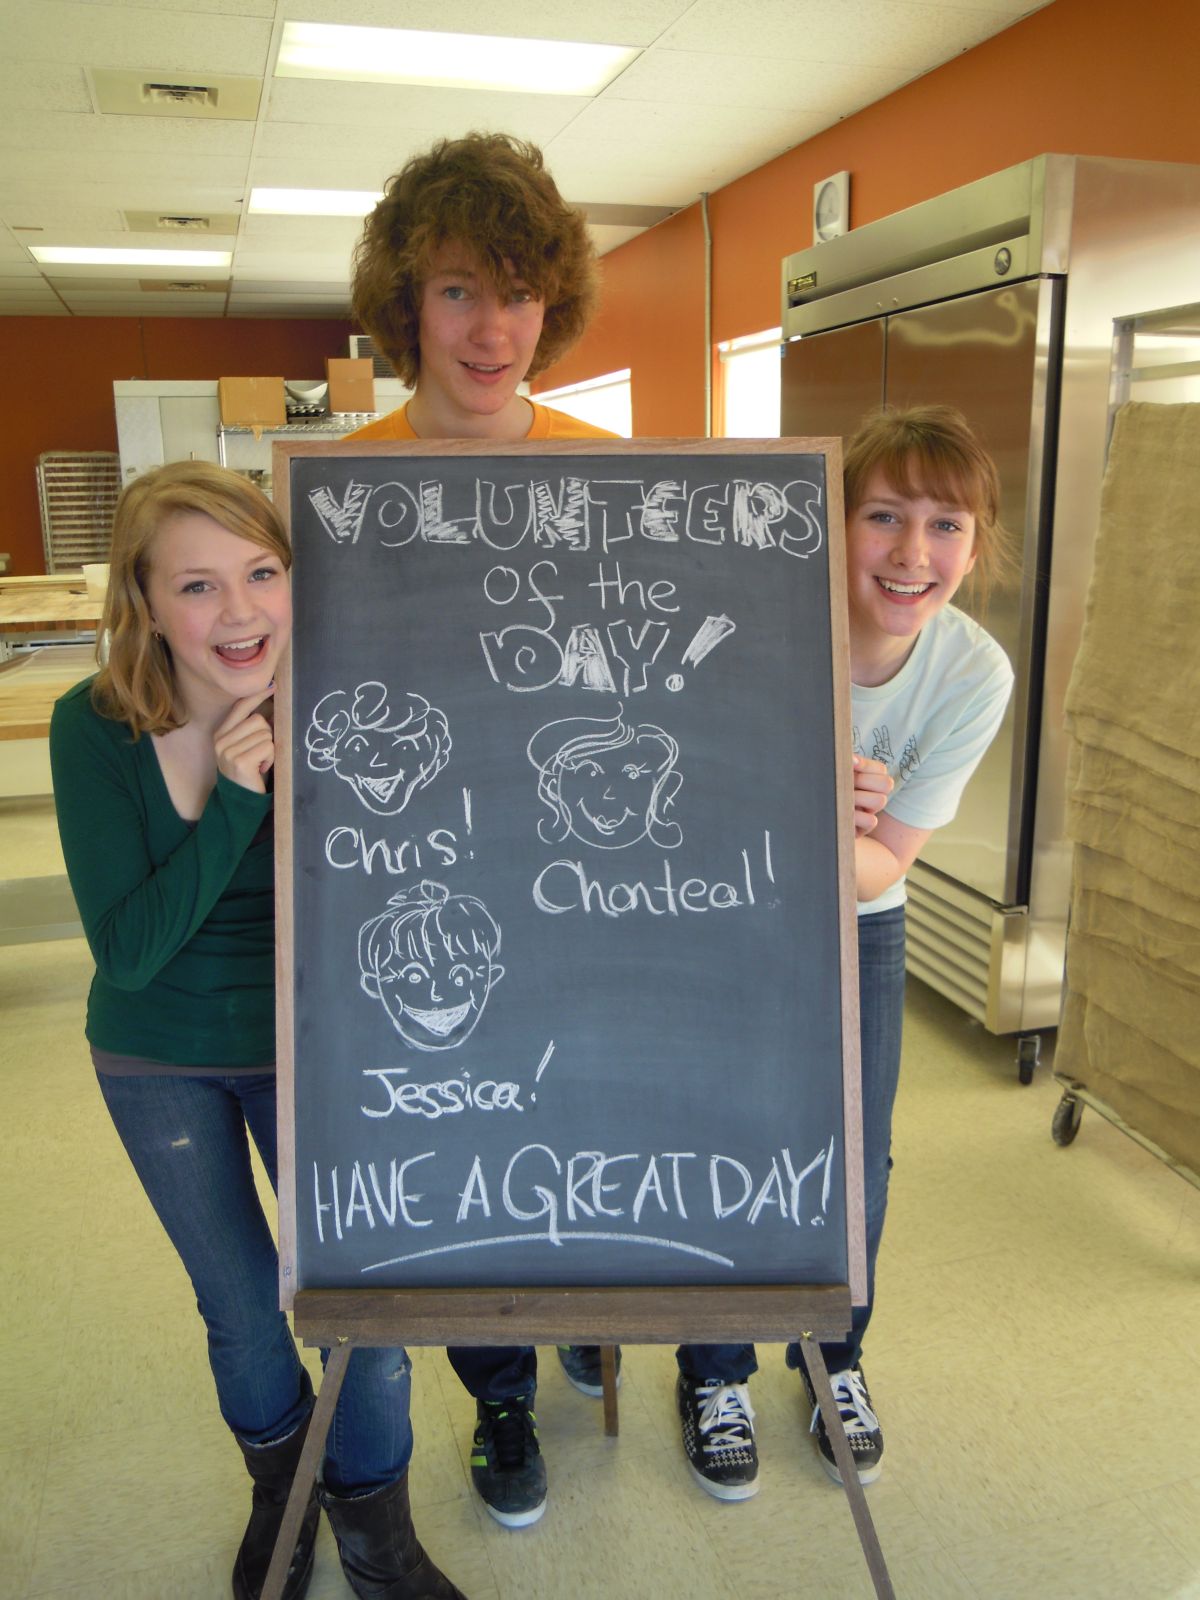 VOLUNTEERS
of the
DAY!
Chris!
Chanteal!
Jessica!
HAVE A GREAT DAY!